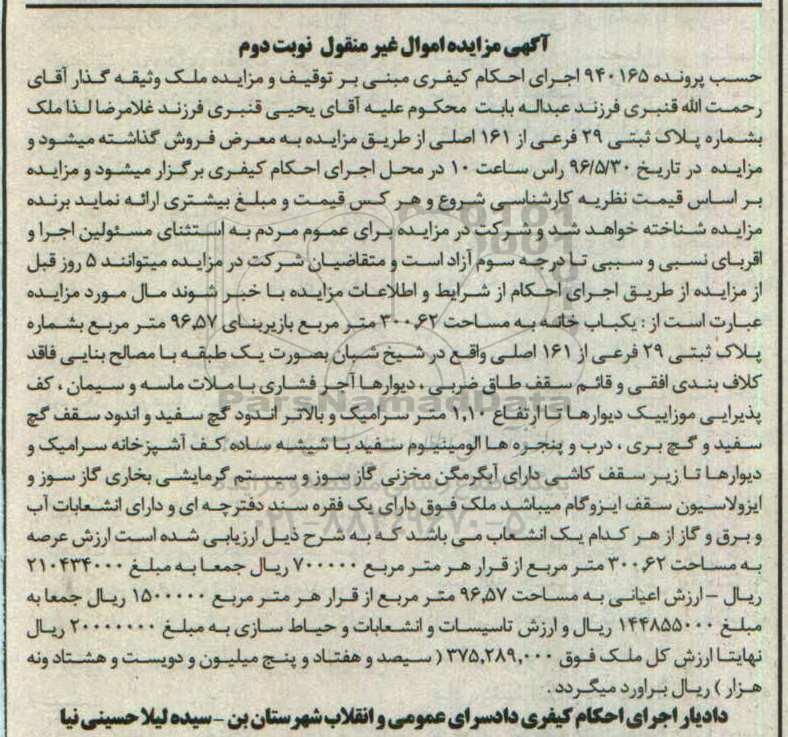 آگهی مزایده اموال غیر منقول نوبت دوم
حسب پرونده ۹۴۰۱۶۵ اجرای احکام کیفری مبنی بر توقیف و مزایده ملک وثیقه گذار آقای
رحمت الله قنبری فرزند عبداله بابت محکوم علیه آقای یحیی قنبری فرزند غلامرضا لذا ملک
بشماره پلاک ثبتی ۲۹ فرعی از ۱۶۱ اصلی از طریق مزایده به معرض فروش گذاشته میشود و
مزایده در تاریخ ۹۶/۵/۳۰ راس ساعت ۱۰ در محل اجرای احکام کیفری برگزار میشود و مزایده
بر اساس قیمت نظریه کارشناسی شروع و هر کس قیمت و مبلغ بیشتری ارائه نماید برنده
مزایده شناخته خواهد شد و شرکت در مزایده برای عموم مردم به استثنای مسئولین اجرا و
اقربای نسبی و سببی تا درجه سوم آزاد است و متقاضیان شرکت در مزایده میتوانند ۵ روز قبل
از مزایده از طریق اجرای احکام از شرایط و اطلاعات مزایده با خبر شوند مال مورد مزایده
عبارت است از : یکباب خانه به مساحت ۳۰۰,۶۲ متر مربع بازیربنای ۹۶,۵۷ متر مربع بشماره
پلاک ثبتی ۲۹ فرعی از ۱۶۱ اصلی واقع در شیخ شبان بصورت یک طبقه با مصالح بنایی فاقد
کلاف بندی افقی و قائم سقف طاق ضربی ، دیوارها آجر فشاری با ملات ماسه و سیمان ، کف
پذیرایی موزاییک دیوارها تا ارتفاع ۱,۱۰ متر سرامیک و بالاتر اندود گچ سفید و اندود سقف گچ
سفید و گچ بری ، درب و پنجره ها الومینیوم سفید با شیشه ساده کف آشپزخانه سرامیک و
دیوارها تا زیر سقف کاشی دارای آبگرمگن مخزنی گاز سوز و سیستم گرمایشی بخاری گاز سوز و
ایزولاسیون سقف ایزوگام میباشد ملک فوق دارای یک فقره سند دفترچه ای و دارای انشعابات آب
و برق و گاز از هر کدام یک انشعاب می باشد که به شرح ذیل ارزیابی شده است ارزش عرصه
به مساحت ۳۰۰,۶۲ متر مربع از قرار هر متر مربع ۷۰۰۰۰۰ ریال جمعا به مبلغ ۲۱۰۴۳۴۰۰۰
ریال - ارزش اعیانی به مساحت ۹۶,۵۷ متر مربع از قرار هر متر مربع ۱۵۰۰۰۰۰ ریال جمعا به
مبلغ ۱۴۴۸۵۵۰۰۰ ریال و ارزش تاسیسات و انشعابات و حیاط سازی به مبلغ ۲۰۰۰۰۰۰۰ ریال
نهایتا ارزش کل ملک فوق ۳۷۵,۲۸۹,۰۰۰ ( سیصد و هفتاد و پنج میلیون و دویست و هشتاد ونه
هزار ) ریال براورد میگردد .
دادیار اجرای احکام کیفری دادسرای عمومی و انقلاب شهرستان بن - سیده لیلا حسینی نیا
ParsNamadData